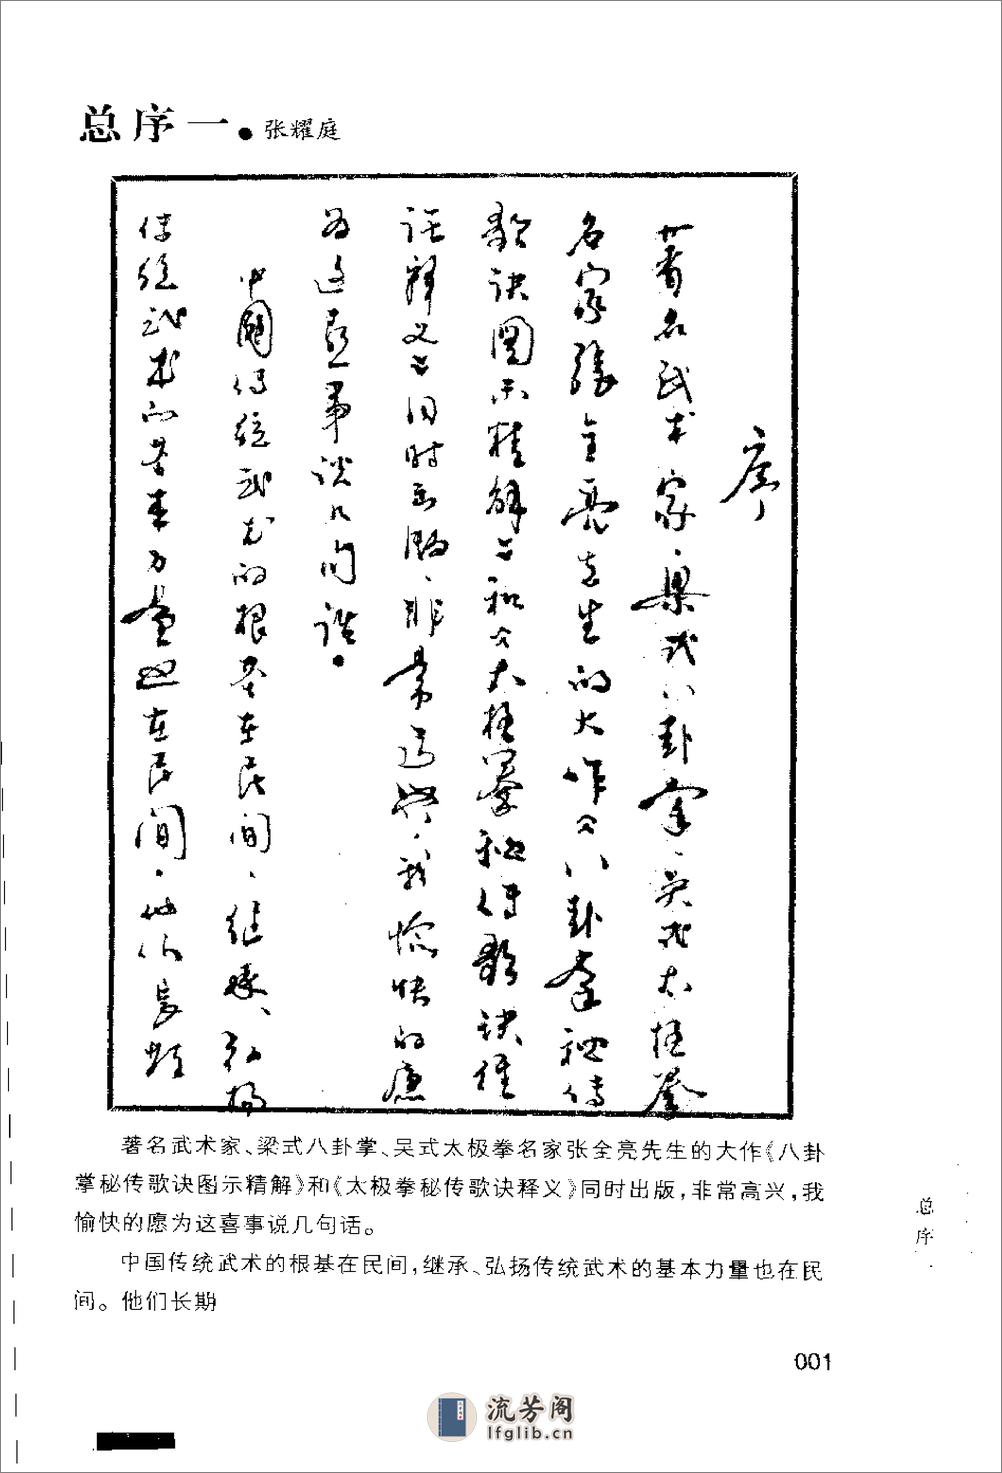 总序一●张耀庭
序
著名武术家、梁式八卦掌、吴式太极拳
名家张全亮先生的大作《八卦掌秘传
歌诀图示精解》和《太极拳秘传歌诀
释义》同时出版，非常高兴，我愉快的愿
为这喜事说几句话。
中国传统武术的根基在民间，继承、弘扬
传统武术的基本力量也在民间。他们长期
著名武术家、梁式八卦掌、吴式太极拳名家张全亮先生的大作《八卦
掌秘传歌诀图示精解》和《太极拳秘传歌诀释义》同时出版，非常高兴，我
愉快的愿为这喜事说几句话。
中国传统武术的根基在民间，继承、弘扬传统武术的基本力量也在民
间。他们长期
总序
001
流芳阁
lfglib.cn